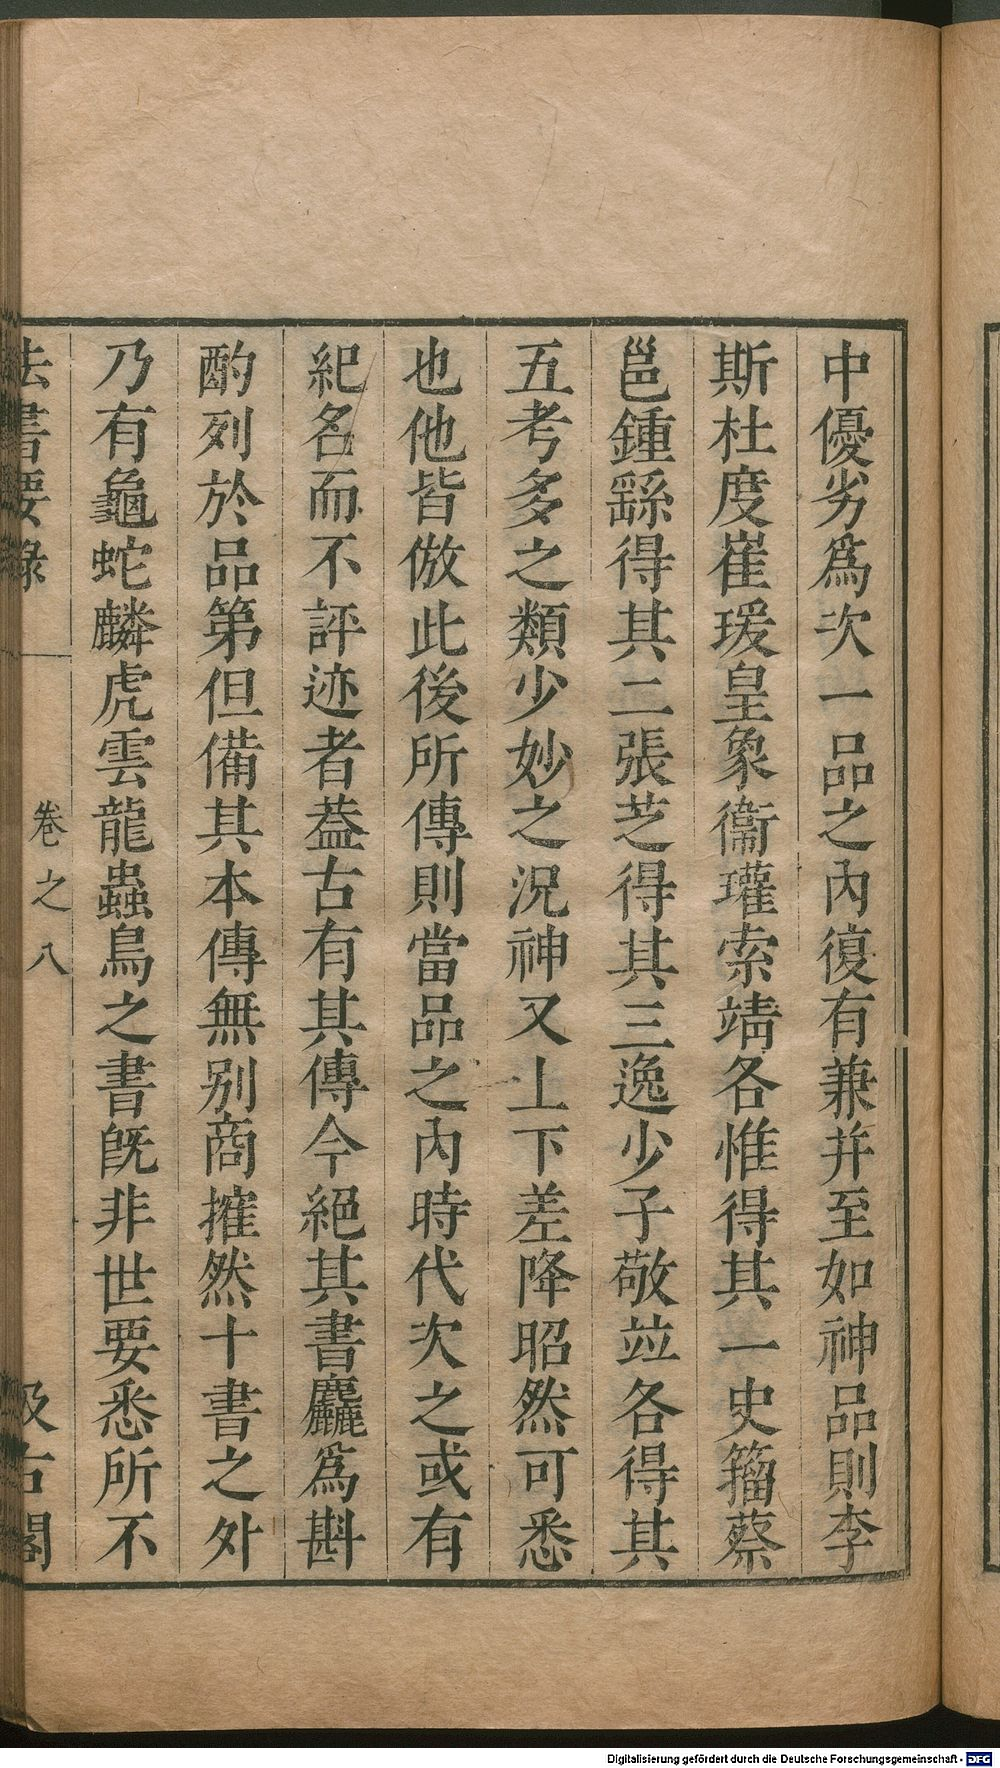 中優劣爲次一品之內復有兼并至如神品則李
斯杜度崔瑗皇象衞瓘索靖各惟得其一史籀蔡
邕鍾繇得其二張芝得其三逸少子敬竝各得其
五考多之類少妙之況神又上下差降昭然可悉
也他皆倣此後所傳則當品之內時代次之或有
紀名而不評迹者葢古有其傳今絕其書麤爲斟
酌列於品第但備其本傳無别商搉然十書之外
乃有龜蛇麟虎雲龍蟲鳥之書旣非世要悉所不
法書要錄 卷之八 汲古閣
Digitalisierung gefördert durch die Deutsche Forschungsgemeinschaft - DFG